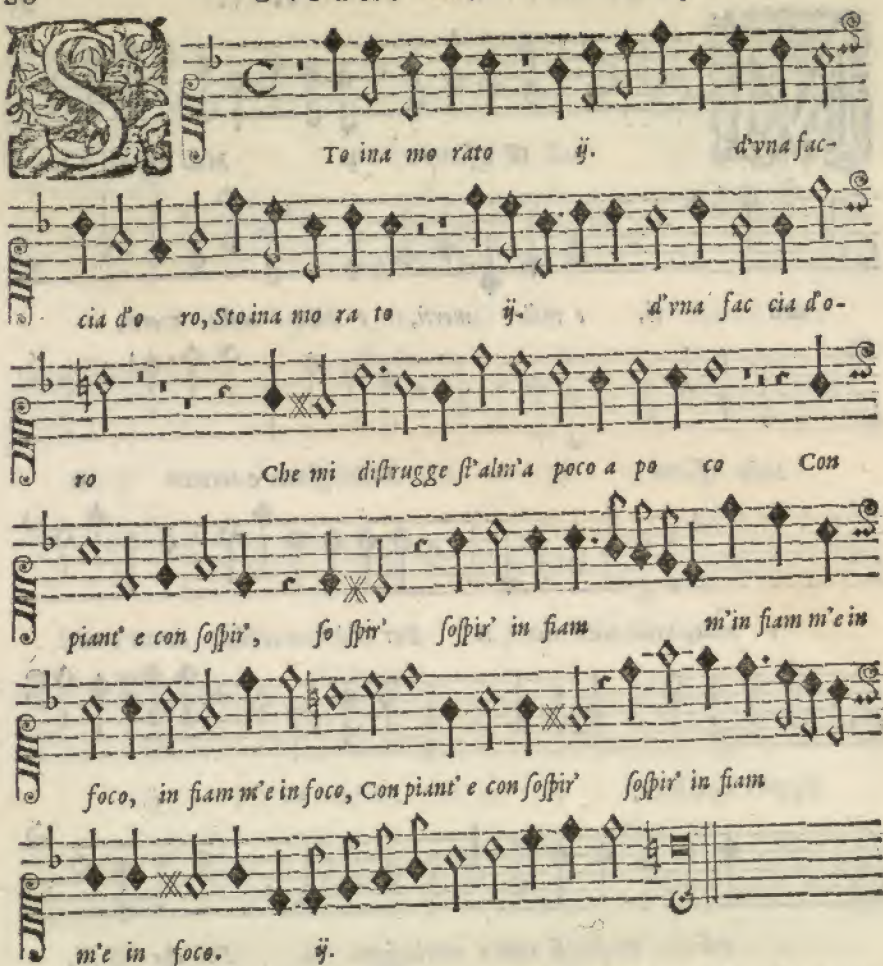 S
To ina mo rato ij. d'vna fac-
cia d'o ro, Sto ina mo ra to ij. d'vna fac cia d'o-
ro Che mi diſtrugge ſt'alm'a poco a po co Con
piant' e con ſoſpir', ſo ſpir' ſoſpir' in fiam m'in fiam m'e in
foco, in fiam m'e in foco, Con piant' e con ſoſpir' ſoſpir' in fiam
m'e in foco. ij.